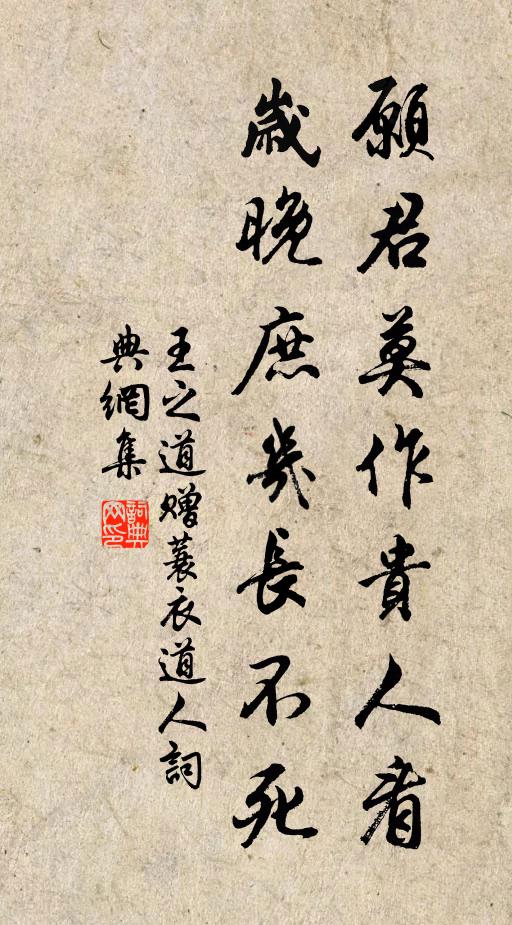 願君莫作貴人看
歲晚庶幾長不死
王之道贈蓑衣道人詞
典網集
詞典
网印